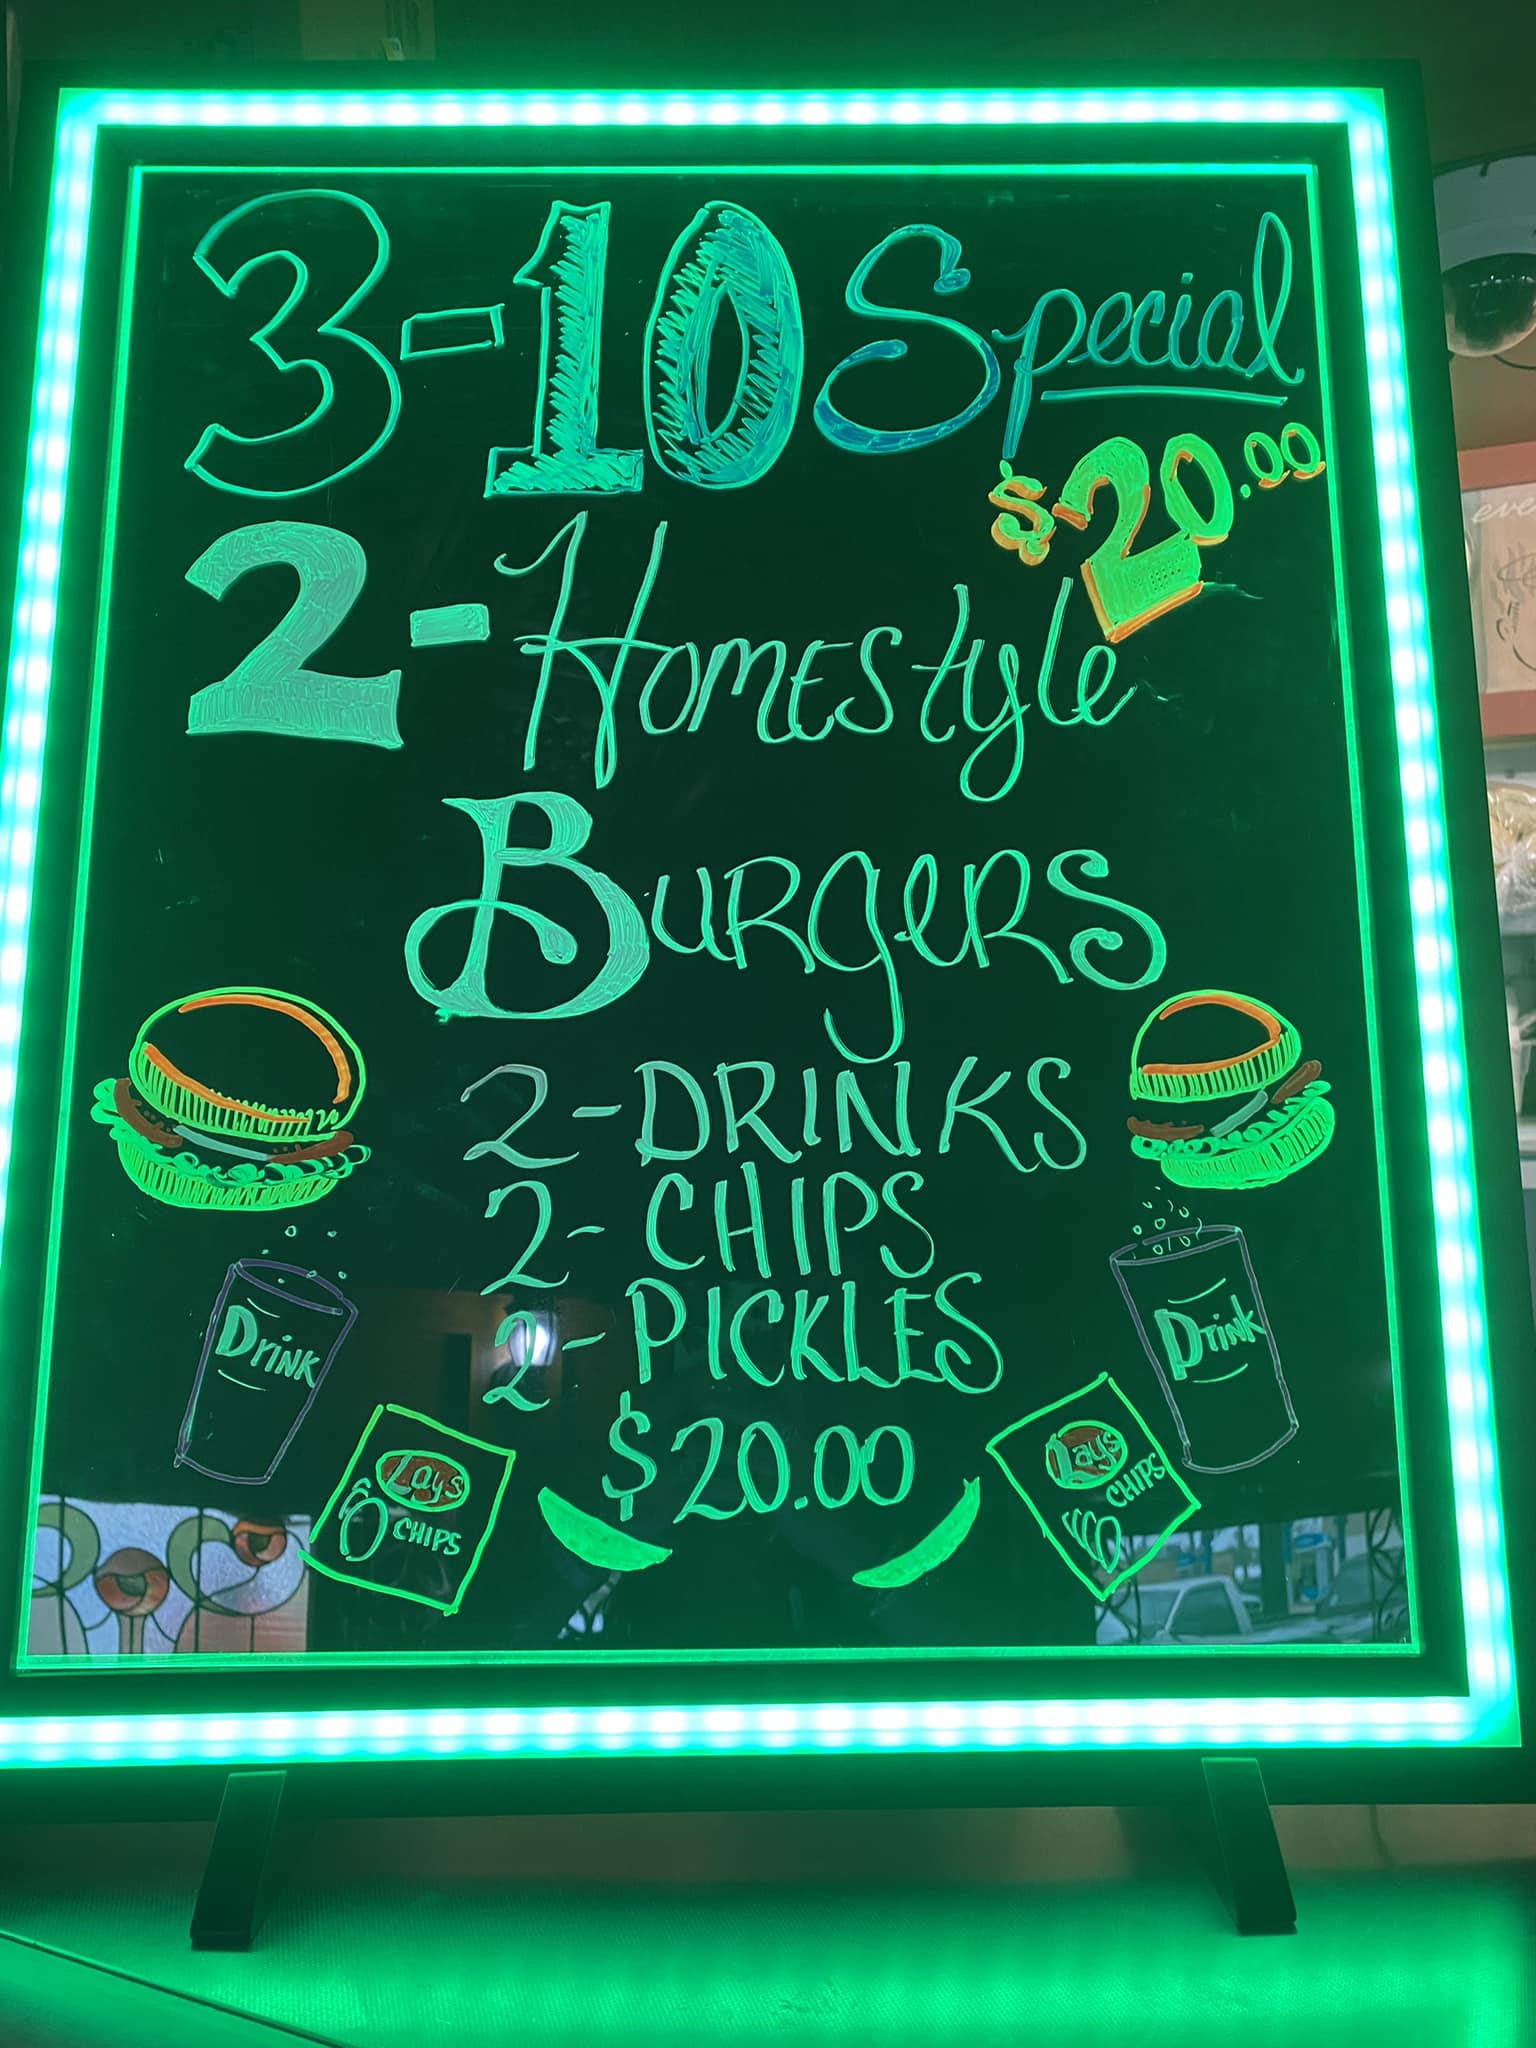 3-10 Special
$-20.00
2-Homestyle
Burgers
2-DRINKS
2-CHIPS
2-PICKLES
$20.00
Drink
Drink
Lays
CHIPS
Lays
CHIPS